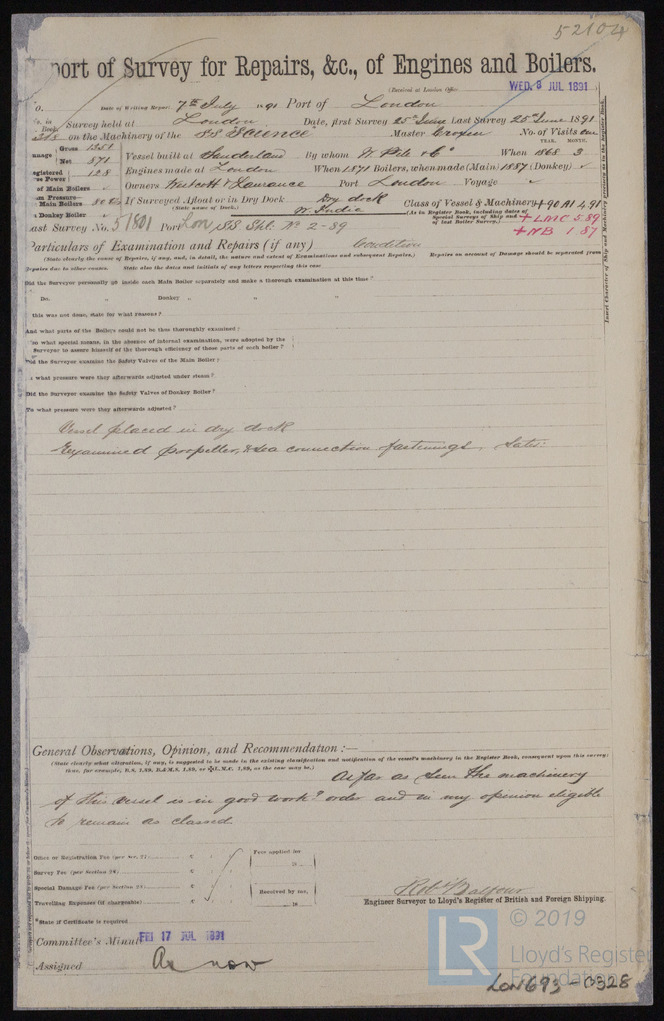 52104
port of Survey for Repairs, &c., of Engines and Boilers.
(Received at London Office WED. 8 JUL 1891
Date of Writing Report 7th July 1891 Port of London
Survey held at London Date, first Survey 25th June Last Survey 25th June 1891
on the Machinery of the SS "Science" Master No. of Visits one
YEAR. MONTH.
Gross 1251
Net 871 Vessel built at Sunderland By whom W. Pile & Co When 1868 3
egistered 128 Engines made at London When 1871 Boilers, when made (Main) 1887 (Donkey) ✓
of Main Boilers ✓ Owners Westcott & Laurance Port London Voyage ✓
Main Boilers 80 lbs If Surveyed Afloat or in Dry Dock Dry dock Class of Vessel & Machinery +90 A1 4,91
(State name of Dock.) W. India (As in Register Book, including dates of Special Surveys of Ship and of last Boiler Survey.) +LMC 5.89
Donkey Boiler ✓
ast Survey No. 51801 Port Lon SS Spt: No 2-89 +NB 1.87
Particulars of Examination and Repairs (if any) Condition
(State clearly the cause of Repairs, if any, and, in detail, the nature and extent of Examinations and subsequent Repairs.) Repairs on account of Damage should be separated from
Repairs due to other causes. State also the dates and initials of any letters respecting this case
Did the Surveyor personally go inside each Main Boiler separately and make a thorough examination at this time?
Do. Donkey " " "
this was not done, state for what reasons?
And what parts of the Boilers could not be thus thoroughly examined?
what special means, in the absence of internal examination, were adopted by the
Surveyor to assure himself of the thorough efficiency of those parts of such boiler?
Did the Surveyor examine the Safety Valves of the Main Boiler?
what pressure were they afterwards adjusted under steam?
Did the Surveyor examine the Safety Valves of Donkey Boiler?
To what pressure were they afterwards adjusted?
Vessel placed in dry dock
Examined propeller, & sea connection fastenings,
General Observations, Opinion, and Recommendation :—
(State clearly what alteration, if any, is suggested to be made in the existing classification and notification of the vessel's machinery in the Register Book, consequent upon this survey;
thus, for example, B.S. 1,89, B.&M.S. 1,89, or ✠L.M.C. 1,89, as the case may be.)
As far as seen the machinery
of this vessel is in good work? order and in my opinion eligible
to remain as classed.
Office or Registration Fee (per Sec. 27) Fees applied for
Survey Fee (per Section 28)
Special Damage Fee (per Section 28)
Travelling Expenses (if chargeable) Received by me,
Robt Balfour
Engineer Surveyor to Lloyd's Register of British and Foreign Shipping.
*State if Certificate is required
Committee's Minute FRI 17 JUL 1891
Assigned As now
© 2019
LR
Lloyd's Register
Foundation
LON693-0328